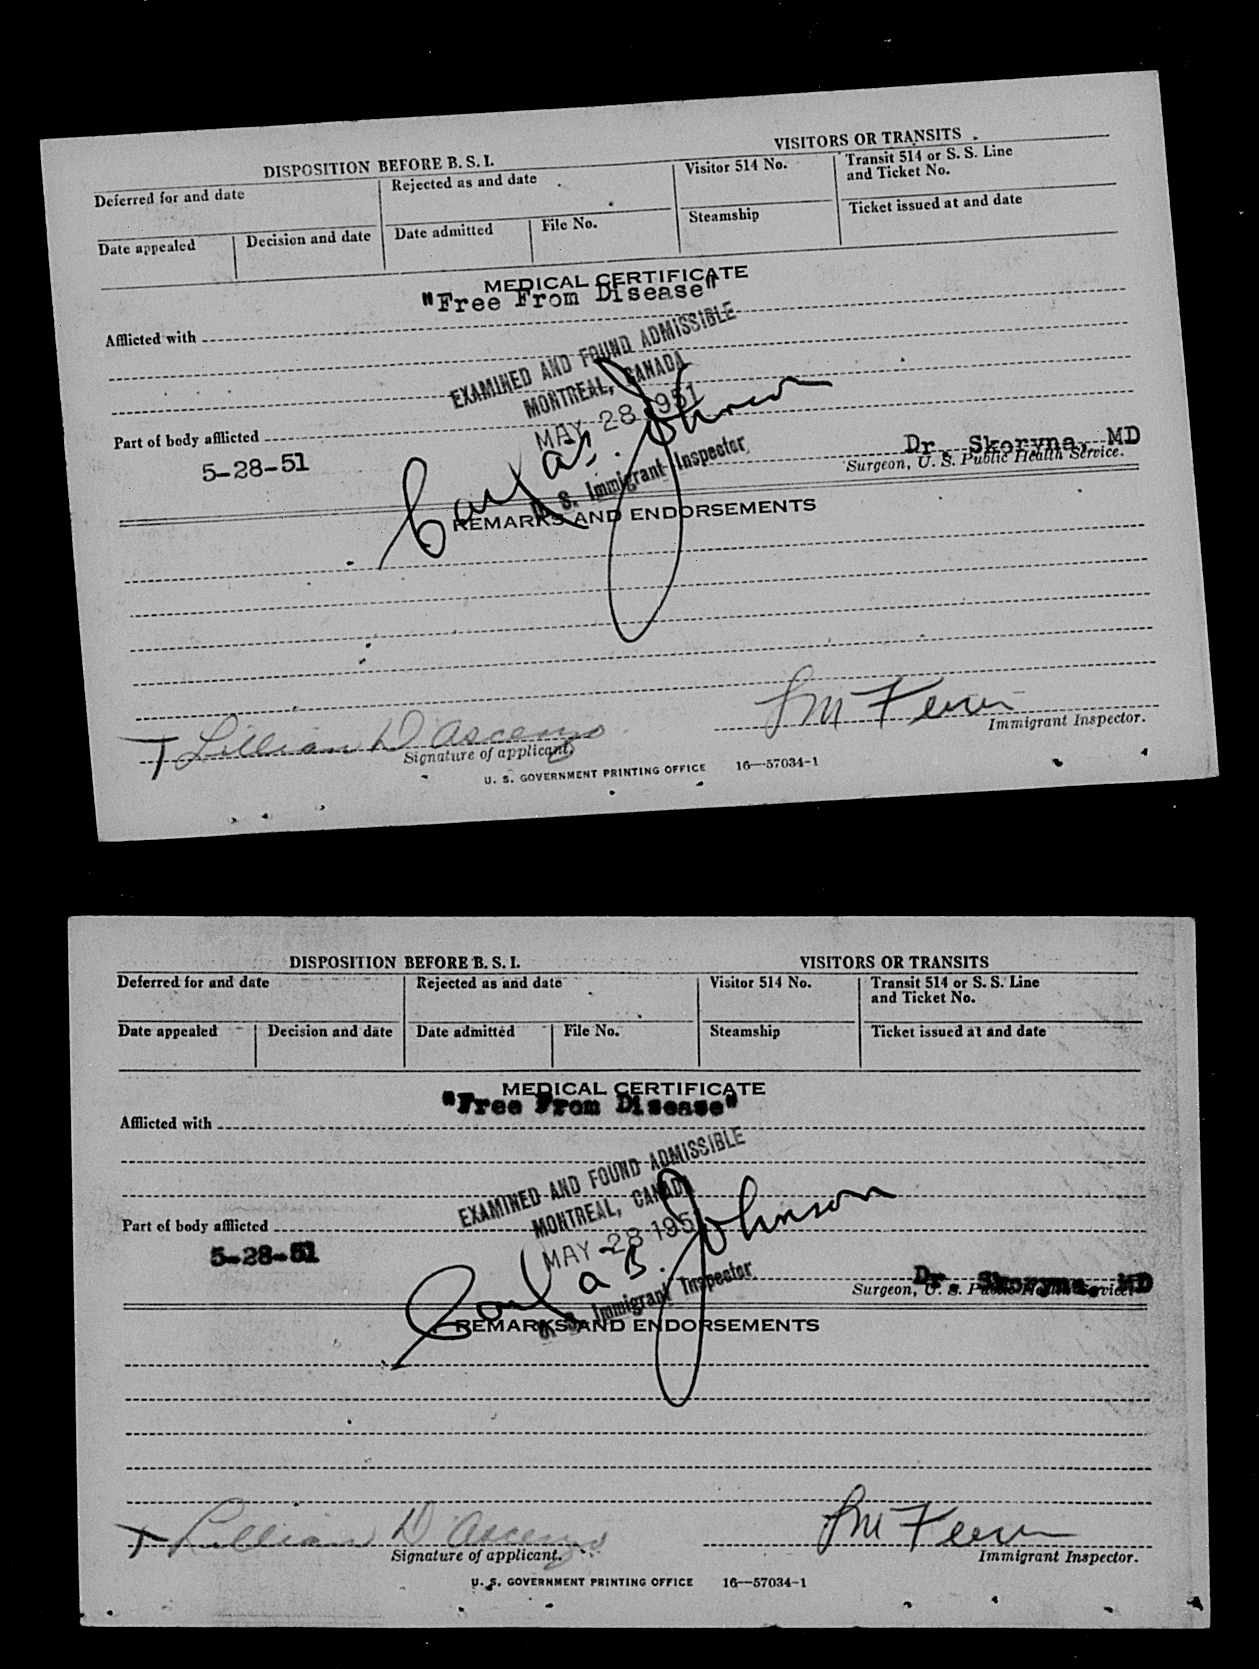 DISPOSITION BEFORE B. S. I.
VISITORS OR TRANSITS
Deferred for and date
Rejected as and date
Visitor 514 No.
Transit 514 or S. S. Line
and Ticket No.
Date appealed
Decision and date
Date admitted
File No.
Steamship
Ticket issued at and date
MEDICAL CERTIFICATE
"Free From Disease"
Afflicted with
EXAMINED AND FOUND ADMISSIBLE
MONTREAL, CANADA
MAY 28 1951
Part of body afflicted
5-28-51
Carl a B. Johnson
U. S. Immigrant Inspector
Dr. Skoryna, MD
Surgeon, U. S. Public Health Service.
REMARKS AND ENDORSEMENTS
Lillian D'Ascenzo
Signature of applicant.
Immigrant Inspector.
U. S. GOVERNMENT PRINTING OFFICE 16—57034-1
DISPOSITION BEFORE B. S. I.
VISITORS OR TRANSITS
Deferred for and date
Rejected as and date
Visitor 514 No.
Transit 514 or S. S. Line
and Ticket No.
Date appealed
Decision and date
Date admitted
File No.
Steamship
Ticket issued at and date
MEDICAL CERTIFICATE
"Free From Disease"
Afflicted with
EXAMINED AND FOUND ADMISSIBLE
MONTREAL, CANADA
MAY 28 1951
Part of body afflicted
5-28-51
Carl a B. Johnson
U. S. Immigrant Inspector
Dr. Skoryna, MD
Surgeon, U. S. Public Health Service.
REMARKS AND ENDORSEMENTS
Lillian D'Ascenzo
Signature of applicant.
Immigrant Inspector.
U. S. GOVERNMENT PRINTING OFFICE 16—57034-1